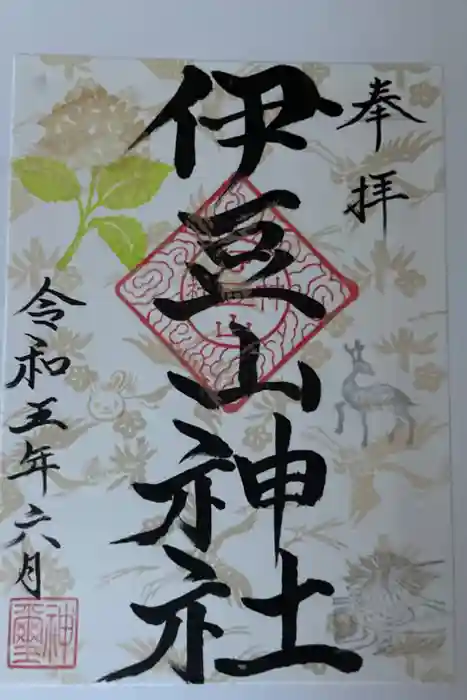 奉拝
伊豆山神社
令和五年六月
神璽